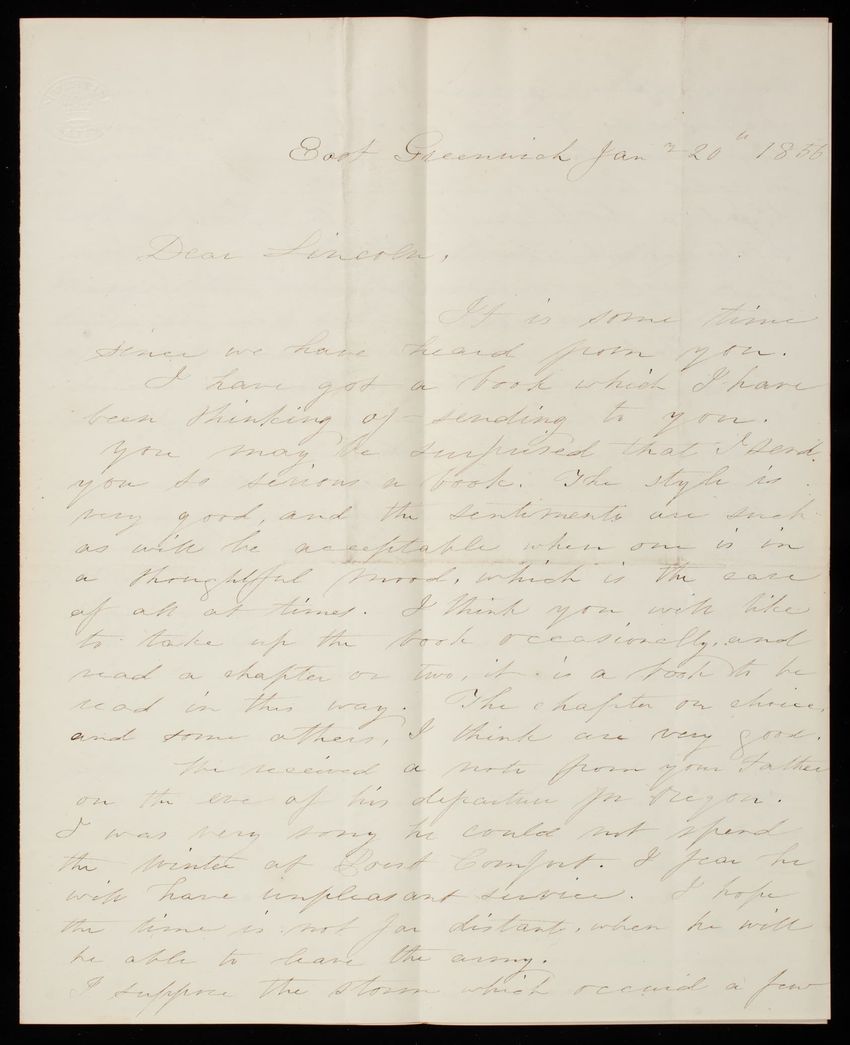 East Greenwich Jan y 20 th 1856
Dear Lincoln,
It is some time
since we have heard from you.
I have got a book which I have
been thinking of sending to you.
you may be surprised that I send
you so serious a book. The style is
very good, and the sentiments are such
as will be acceptable when one is in
a thoughtful mood, which is the case
of all at times. I think you will like
to take up the book occasionally, and
read a chapter or two, it is a book to be
read in this way. The chapter on choice,
and some others, I think are very good.
We received a note from your Father
on the eve of his departure for Oregon.
I was very sorry he could not spend
the Winter at Point Comfort. I fear he
will have unpleasant service. I hope
the time is not far distant, when he will
be able to leave the army.
I suppose the storm which occurid a few